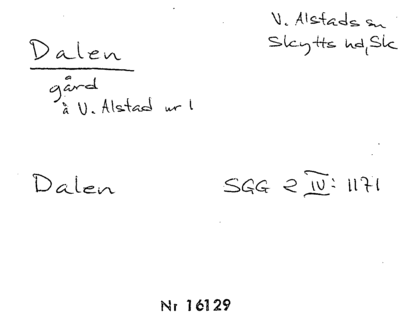 V. Alstads sn
Skytts hd, Sk
Dalen
gård
å V. Alstad nr 1
Dalen SGG 2 IV: 1171
Nr 16129